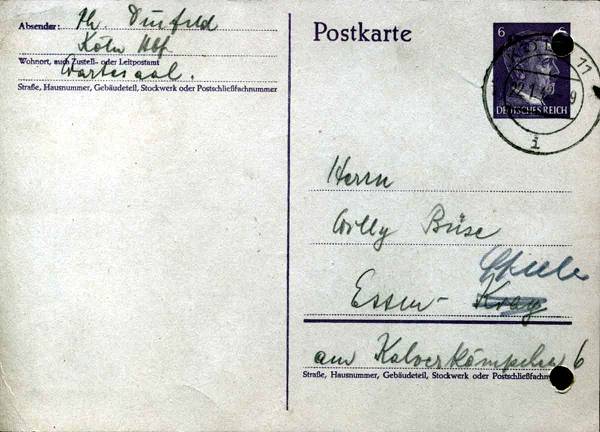 Absender: Th. Dünfeld
Köln Hbf.
Wohnort, auch Zustell- oder Leitpostamt
Wartesaal.
Straße, Hausnummer, Gebäudeteil, Stockwerk oder Postschließfachnummer
Postkarte
6 6
DEUTSCHES REICH
11
i
Herrn
Willy Büse
Steele
Essen- Kray
am Kalverkämpchen 6
Straße, Hausnummer, Gebäudeteil, Stockwerk oder Postschließfachnum